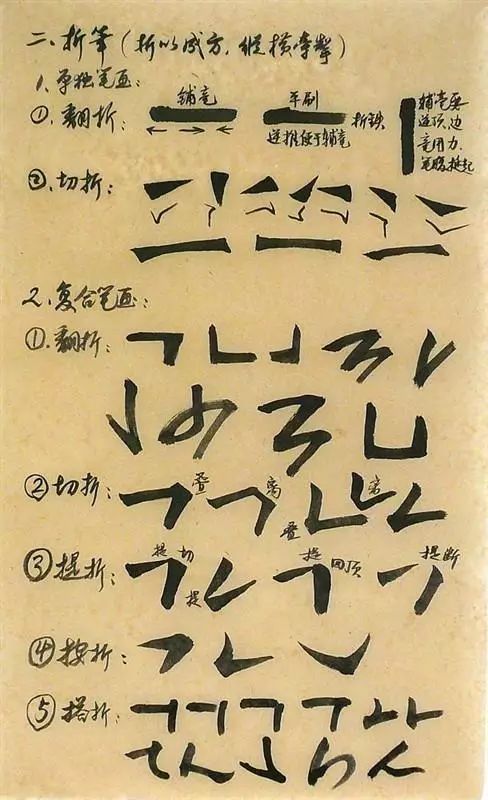 二、折笔(折以成方,纵横牵掣)
1.单独笔画:
①.翻折: 铺毫 平刷 逆推便于铺毫 折铁 铺毫要
逆顶,边
走用力.
笔腹挺起
②.切折:
2.复合笔画:
①.翻折:
②切折: 叠 离 叠 离
③提折: 提 切 提 提 回顶 提断
④按折:
⑤搭折: